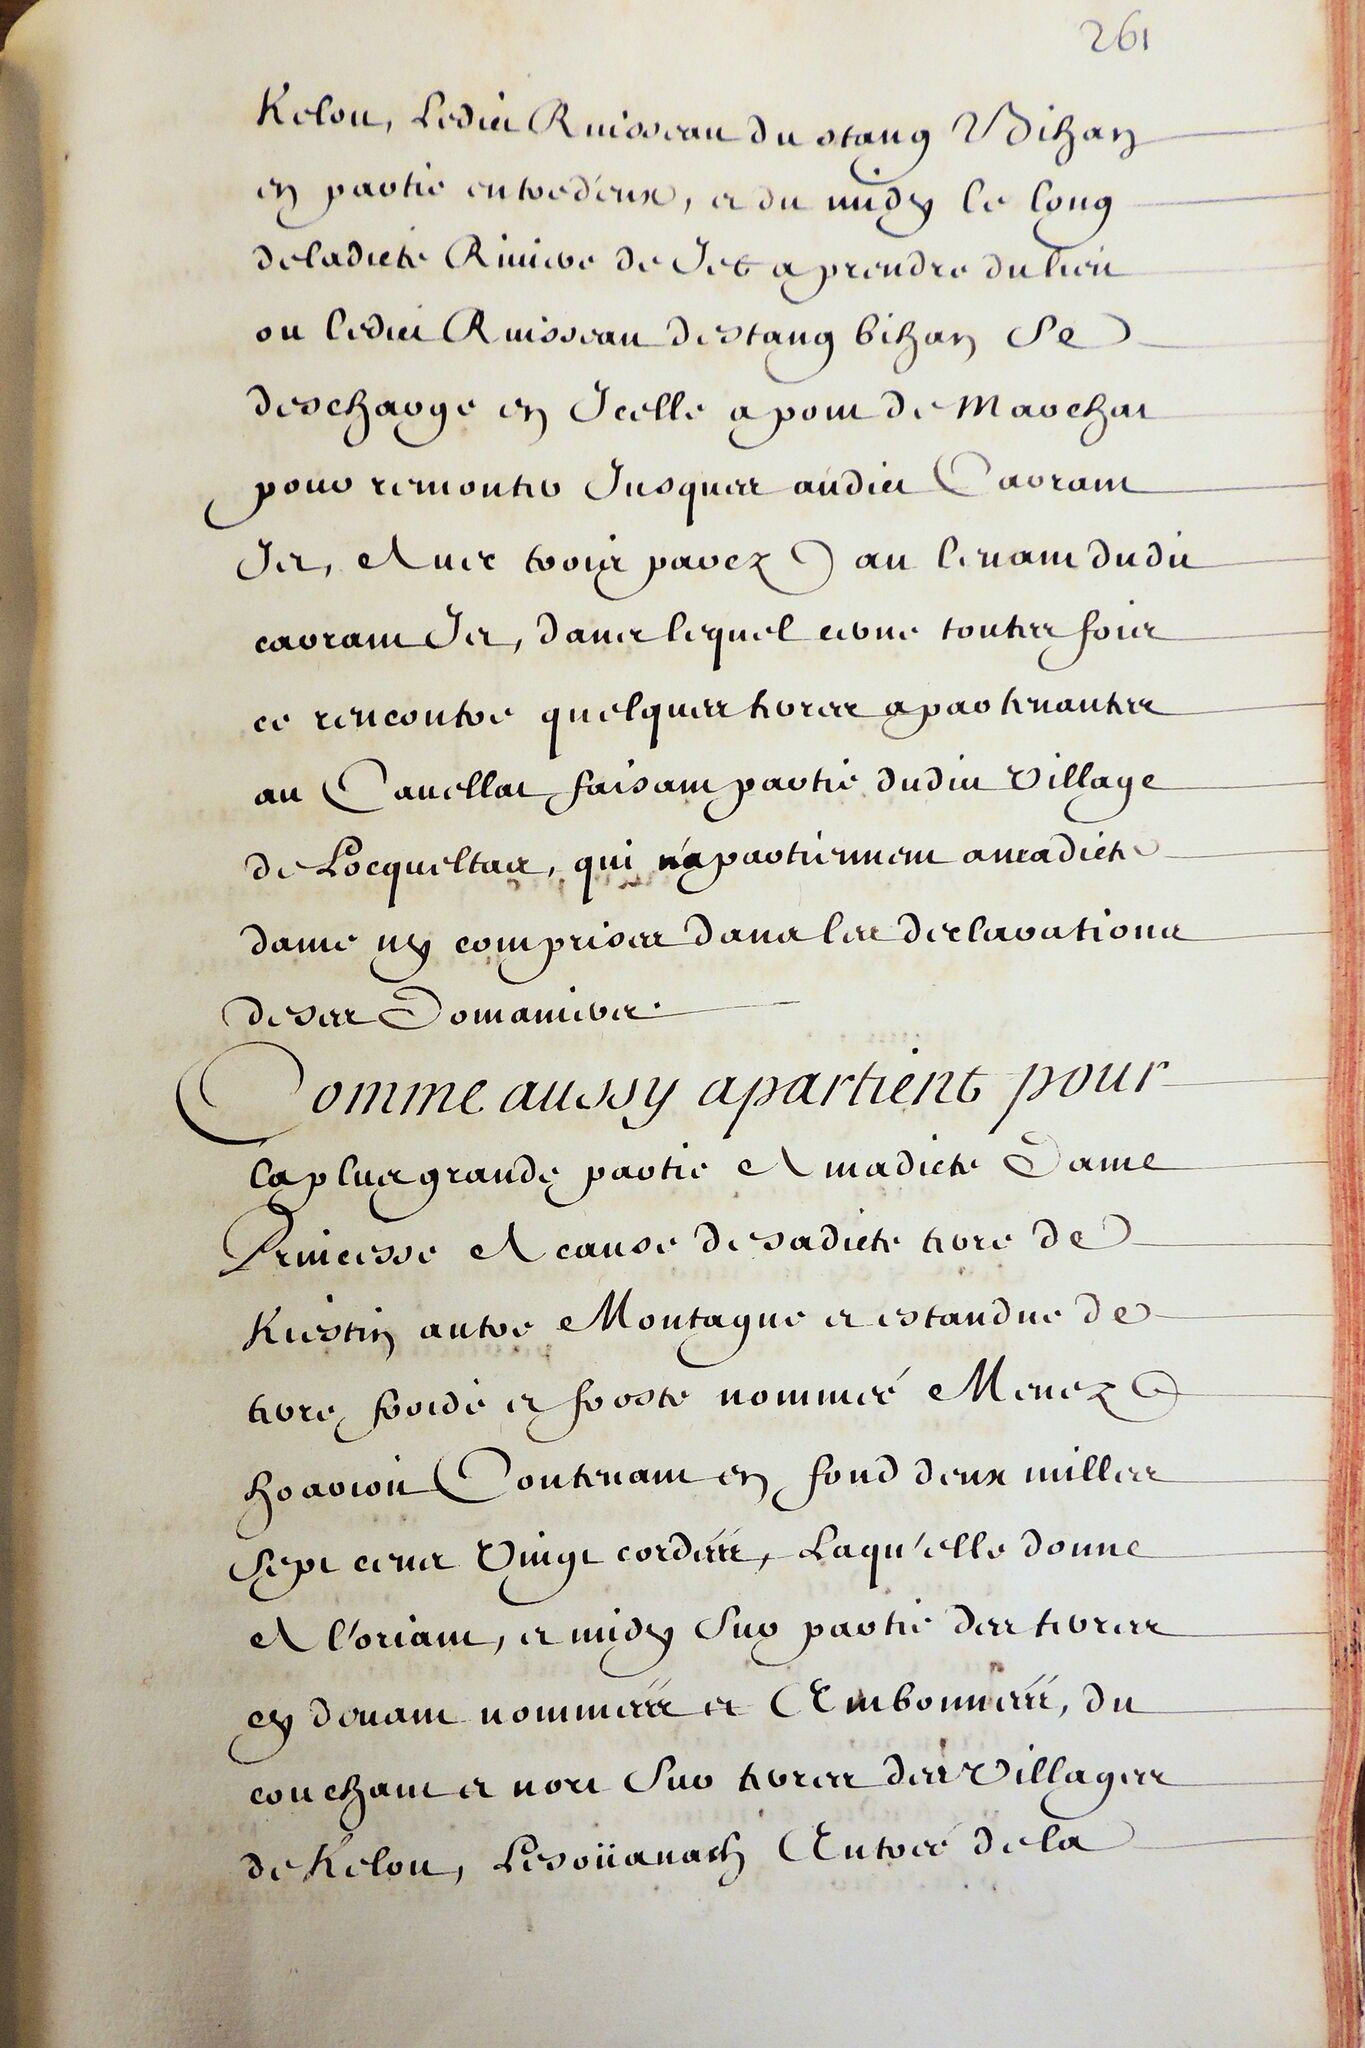 261
Kelou, Ledict Ruisseau du stang Bihan
en partie entredeux, et du midy le long
deladicte Riviere de Jet a prendre du lieu
ou ledict Ruisseau destang bihan Se
descharge en Jcelle a pont de Marchat
pour remonter Jusques audict Carront
Jet, Aux trois parez au levant dudit
carront Jet, dans lequel cerne touttes fois
ce rencontre quelques terres apartenantes
au Cavellat faisant partie dudit Village
de Locqueltas, qui n'apartiennent a madicte
dame ny comprises dans les declarations
deses Domaniers.
Comme aussy apartient pour
la plus grande partie A madicte Dame
Princesse A cause desadicte terre de
Kiestin autre Montagne et estandue de
terre froide et froste nommé Menez
hoarvin Contenant en fond deux milles
Sept cens Vingt cordées, Laqu'elle donne
A l'oriant, et midy Sur partie des terres
cy devant nommées et Embornées, du
couchant et nort Sur terres des Villages
de Kelou, Lesoüanach Entrée de la